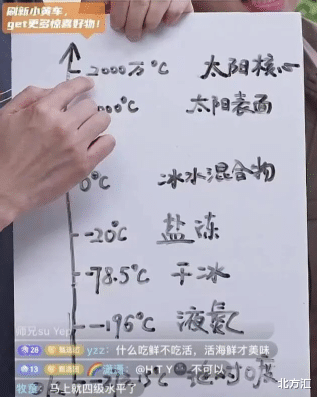 刷新小黄车，
get更多惊喜好物！
2000万°C 太阳核心
00°C 太阳表面
0°C 冰水混合物
-20°C 盐冻
-78.5°C 干冰
-196°C 液氮
师兄su Yep
28 甄选团 yzz：什么吃鲜不吃活，活海鲜才美味
13 甄选团 潇湾：@HTY 不可以
牧鱼：马上就四级水平了
绝对0度
北方汇